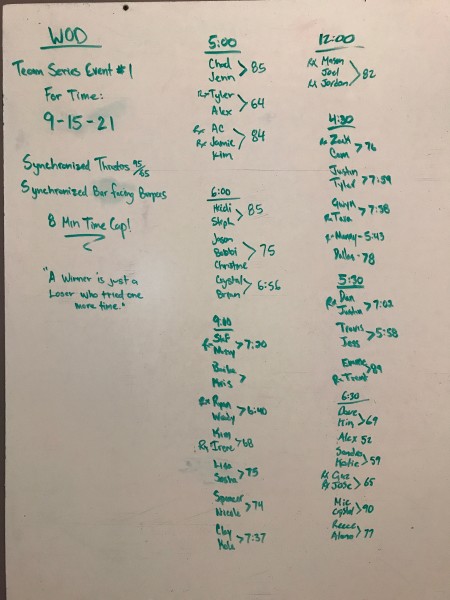 WOD
Team Series Event #1
For Time:
9-15-21
Synchronized Thrusters 95/65
Synchronized Bar facing Burpees
8 Min Time Cap!
"A Winner is just a
Loser who tried one
more time."
5:00
Chad
Jenn > 85
Rx Tyler
Alex > 64
Rx AC
Rx Jamie > 84
Kim
6:00
Heidi
Steph > 85
Jason
Bobbi > 75
Christine
Crystal
Brian > 6:56
9:00
Rx > 7:20
>
Rx Ryan
Wendy > 6:40
Kim
Rx Irene > 68
Lisa
Sasha > 75
Spencer
Nicole > 74
Clay
> 7:37
12:00
Rx Mason
Joel > 82
Rx Jordan
4:30
Rx Zack
Cam > 76
Justin
Tyler > 7:59
Gwyn
Rx Tara > 7:38
Rx Manny - 5:43
Dallas - 78
5:30
Rx Dan
Justin > 7:02
Travis
Jess > 5:58
Emma
Rx Trent > 89
6:30
Dave
Kim > 69
Alex 52
Sandra
Katie > 59
Rx Guz
Rx Jose > 65
Mic
Crystal > 90
Reece
> 77